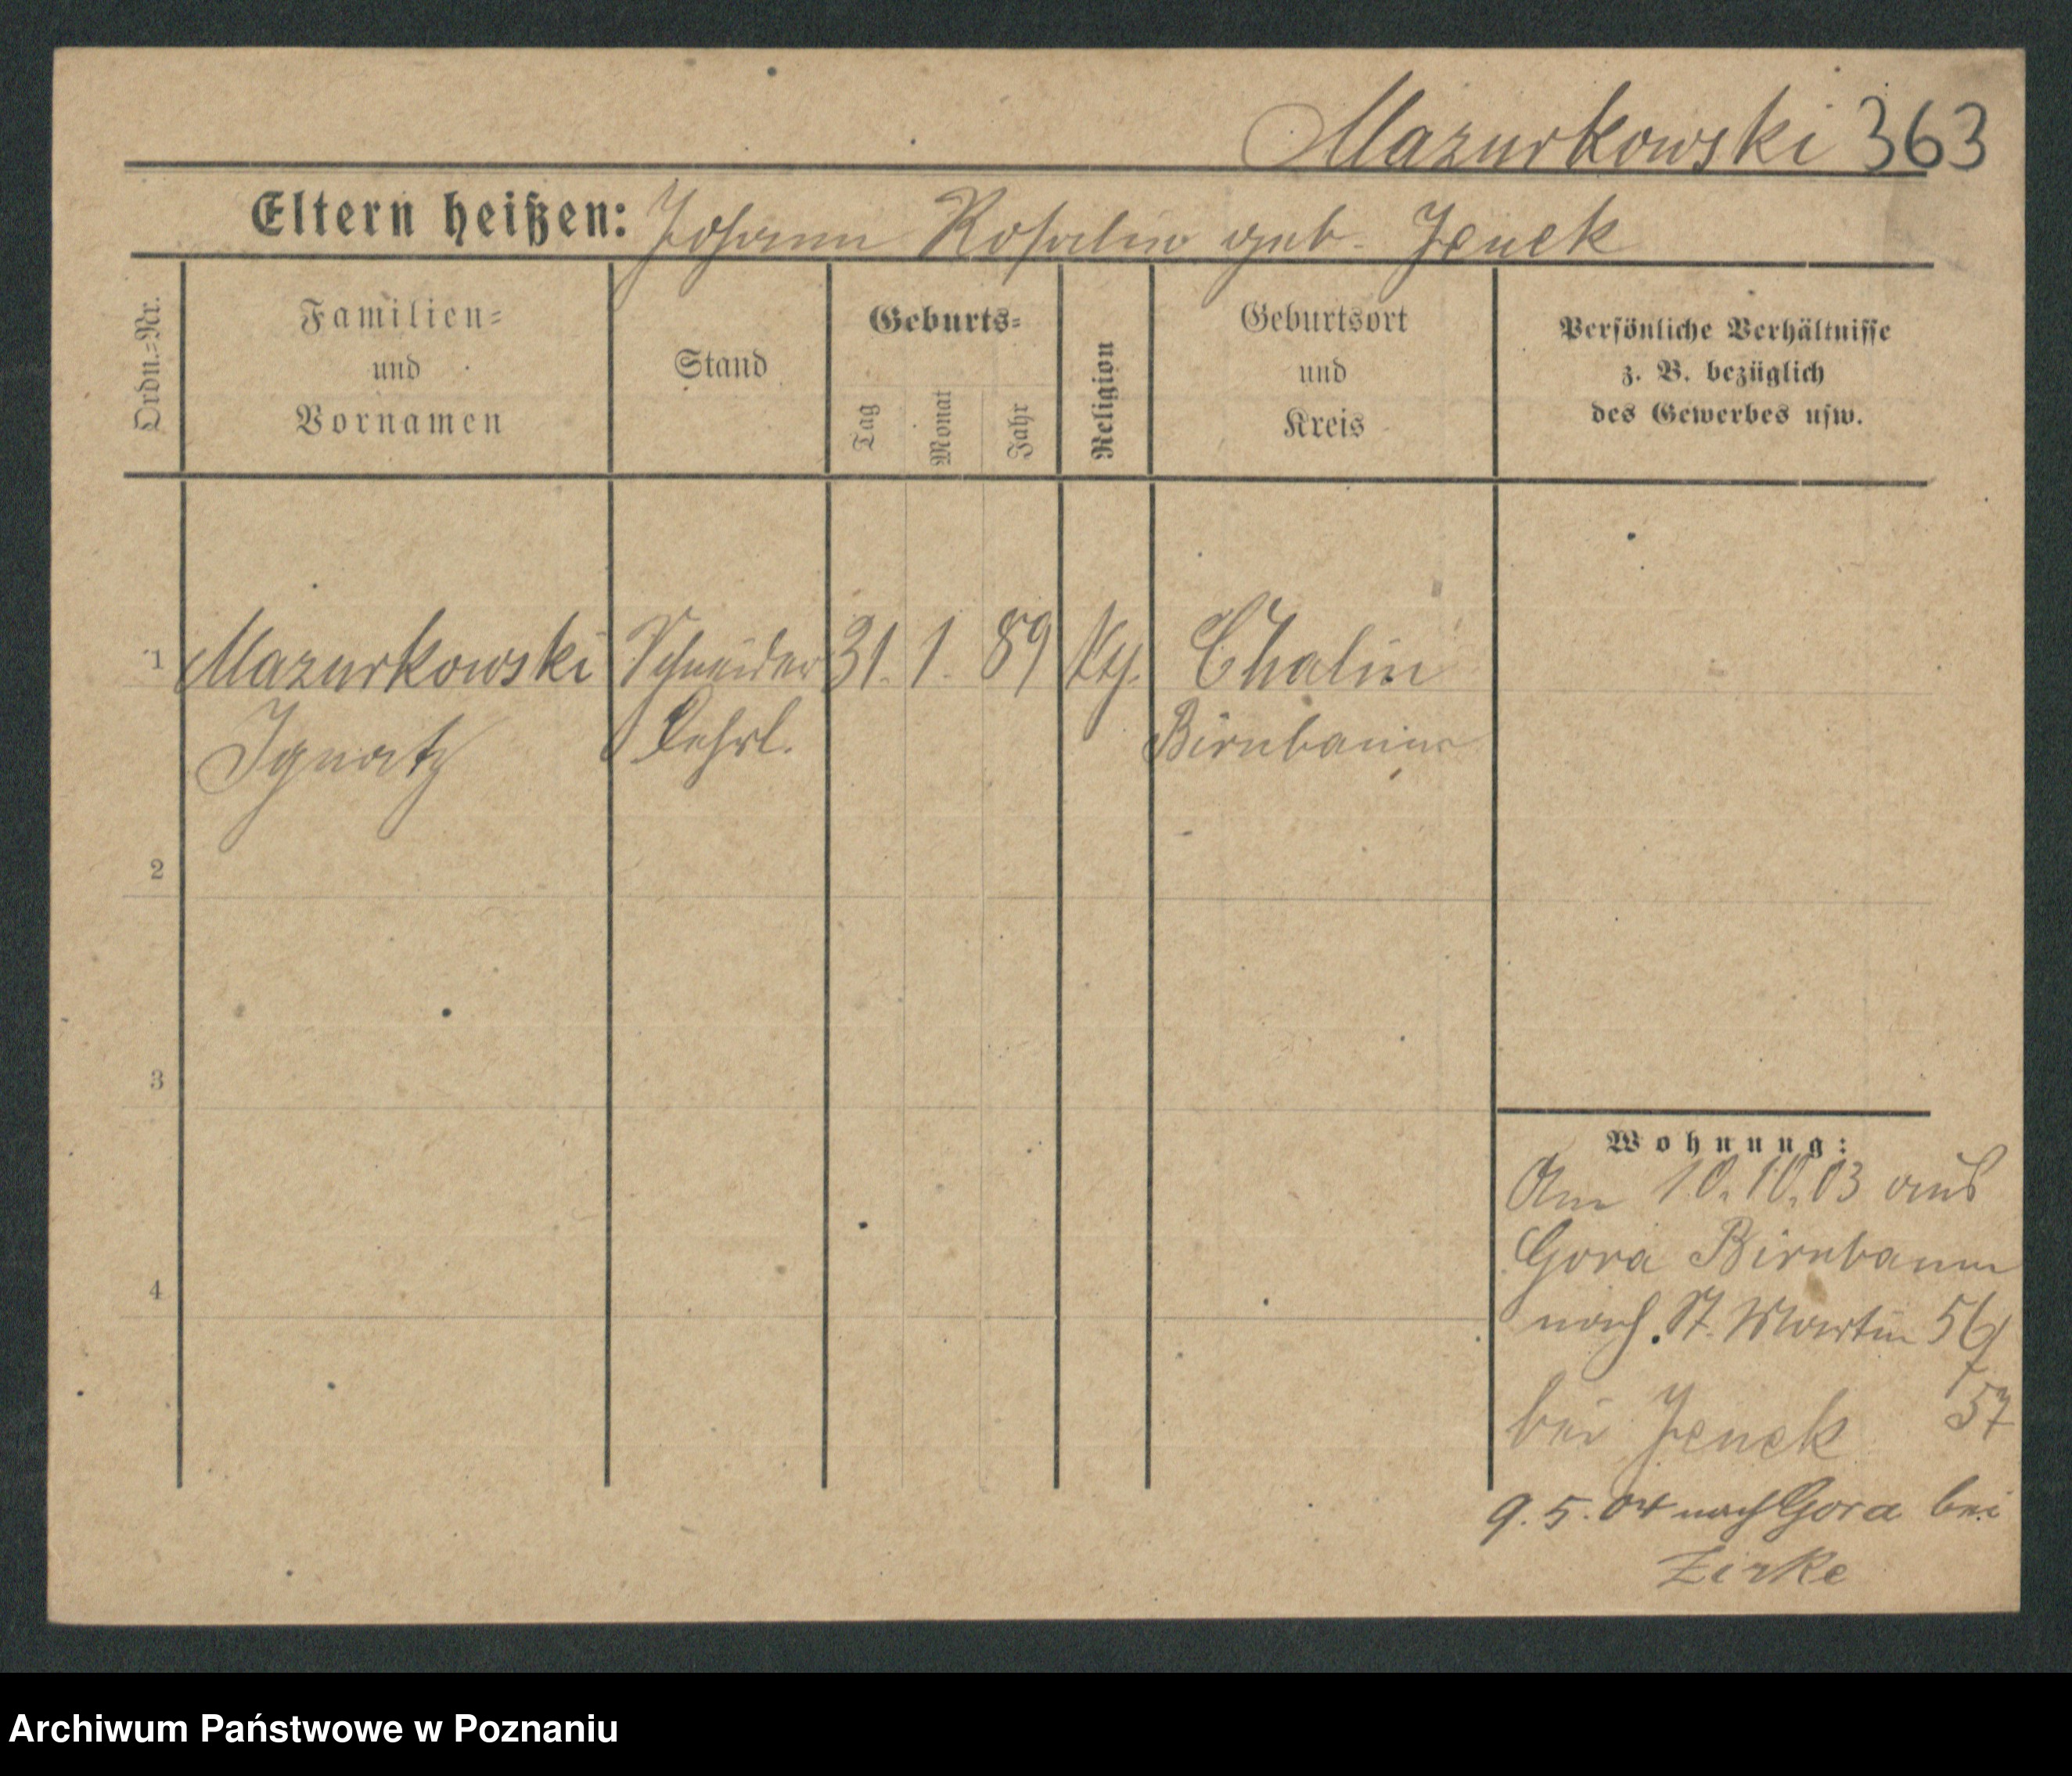 Mazurkowski 363
Eltern heißen: Johann Rosalie geb. Jenek
Ordn.=Nr.
Familien=
und
Vornamen
Stand
Geburts=
Tag
Monat
Jahr
Religion
Geburtsort
und
Kreis
Persönliche Verhältnisse
z. B. bezüglich
des Gewerbes usw.
1 Mazurkowski Schneider 31. 1. 89 Chalin
Ignatz Lehrl. Birnbaum
2
3
4
Wohnung:
Am 10.10.03 aus
Gora Birnbaum
nach St. Martin 56/
57
bei Jenek
9.5.04 nach Gora bei
Zirke
Archiwum Państwowe w Poznaniu